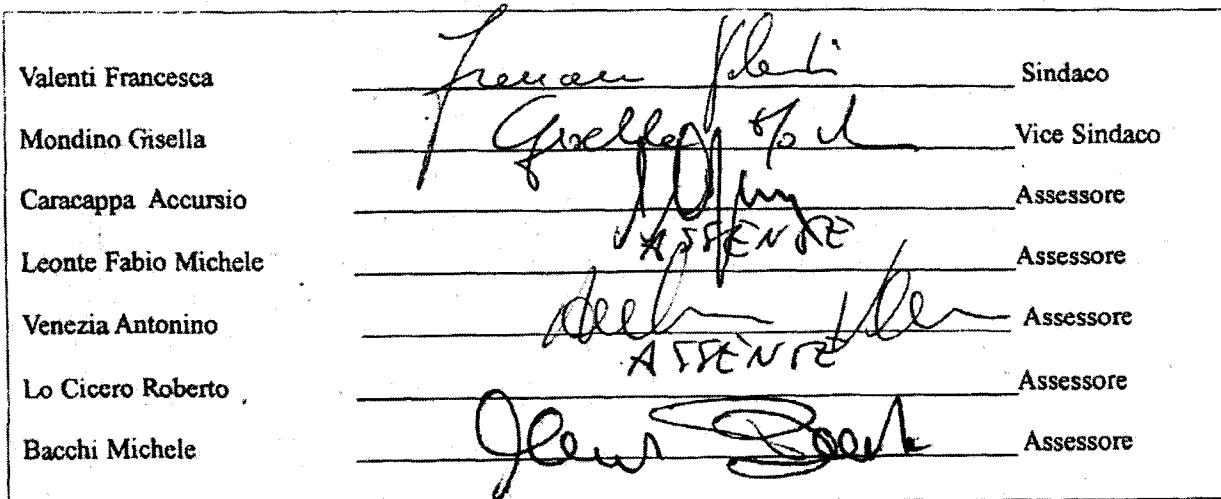 Valenti Francesca Francesca Valenti Sindaco
Mondino Gisella Gisella Vice Sindaco
Caracappa Accursio Assessore
Leonte Fabio Michele ASSENTE Assessore
Venezia Antonino Assessore
Lo Cicero Roberto ASSENTE Assessore
Bacchi Michele Assessore